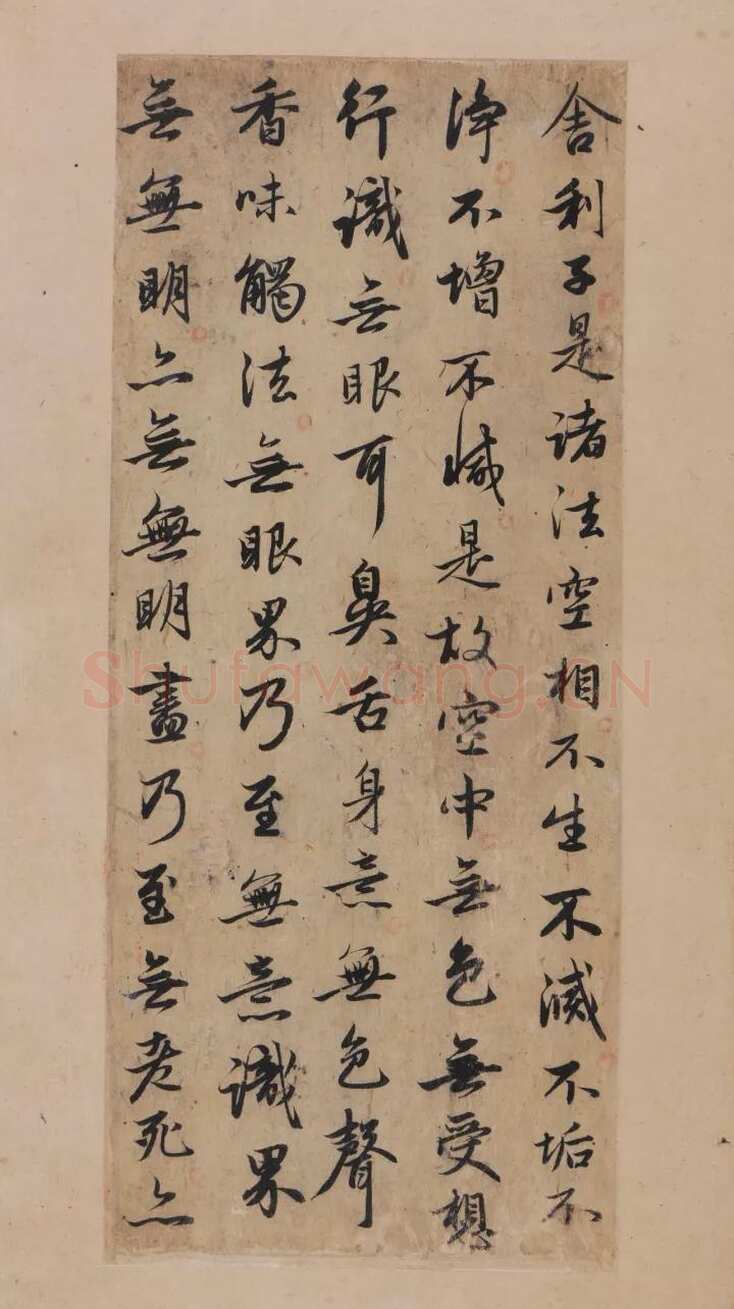 舍利子是諸法空相不生不滅不垢不
淨不增不減是故空中無色無受想
行識無眼耳鼻舌身意無色聲
香味觸法無眼界乃至無意識界
無無明亦無無明盡乃至無老死亦
Shufawang.CN